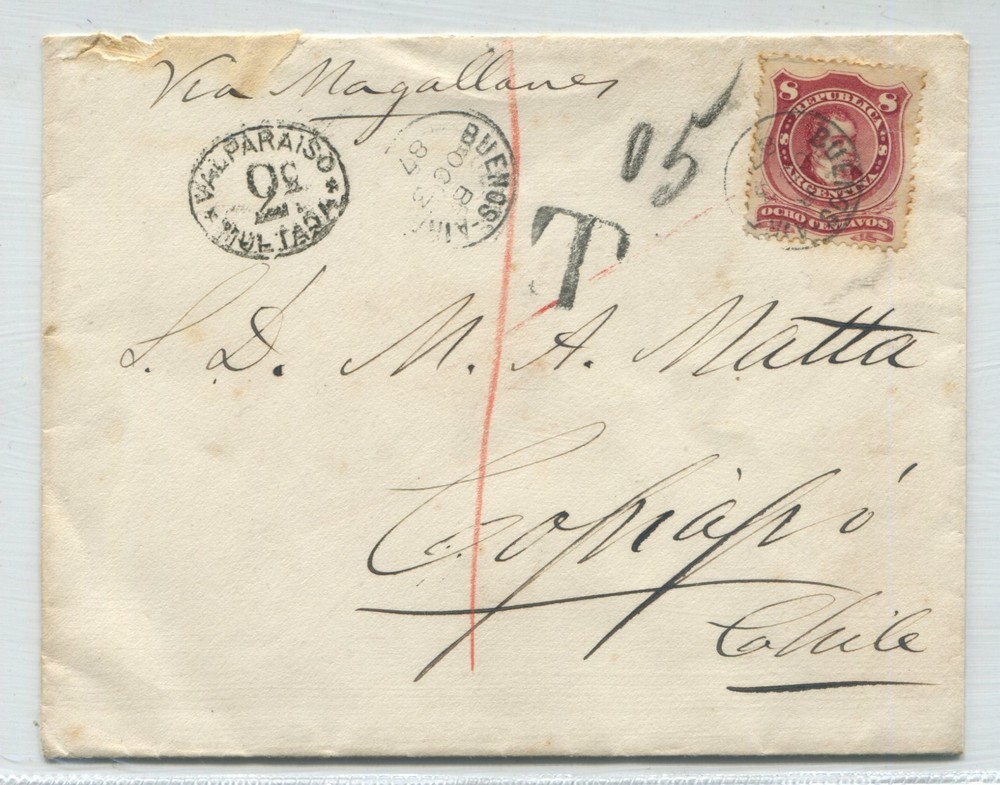 Via Magallanes
8 8
REPUBLICA
ARGENTINA
OCHO CENTAVOS
BUENOS
VALPARAISO
30
MULTADA
BUENOS AIRES
87
T
S. D. M. A. Matta
Copiapó
Chile